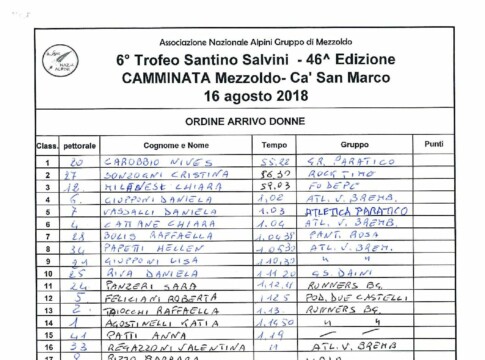 Associazione Nazionale Alpini Gruppo di Mezzoldo
6° Trofeo Santino Salvini - 46^ Edizione
CAMMINATA Mezzoldo- Ca' San Marco
16 agosto 2018
ORDINE ARRIVO DONNE
Class. pettorale Cognome e Nome Tempo Gruppo Punti
1 20 CAROBBIO NIVES 55.22 GR. PARATICO
2 27 BONZOGNI CRISTINA 56.30 ROCK TIME
3 18 MILANESE CHIARA 59.03
4 6 GIUPPONI DANIELA 1,02 ATL. V. BREMB.
5 7 VASSALLI DANIELA 1.03 ATLETICA PARATICO
6 4 CATTANE CHIARA 1.04 ATL. V. BREMB.
7 28 RAFFAELLA PANT. ROSA
8 PAPETTI HELLEN ATL. V. BREM.
9 GIUPPONI LISA 1,10,37 " "
10 25 RIVA DANIELA 1.11 20 GS. DAINI
11 24 PANZERI SARA 1.12,11 RUNNERS BG
12 5 FELICIANI ROBERTA 1.12 5 POD. DUE CASTELLI
13 2 TAIOCCHI RAFFAELLA 1.13. RUNNERS BG.
14 1 AGOSTINELLI KATIA 1.14.50 " "
15 41 PATTI ANNA 1.19
16 33 REGAZZONI VALENTINA 11 ATL. V. BREMB
17 RIZZO BARBARA